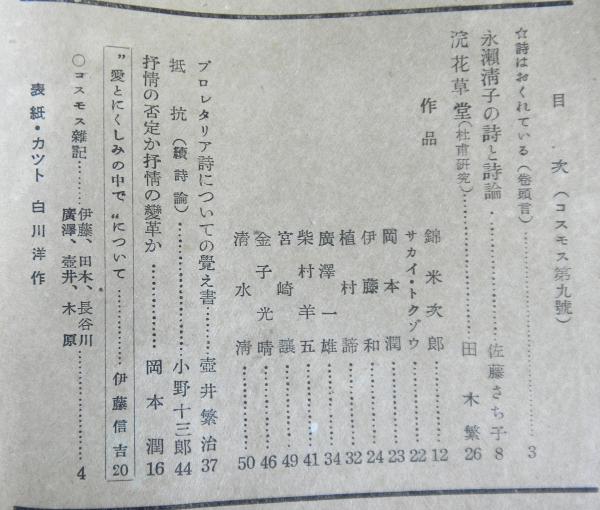 目次（コスモス第九號）
☆詩はおくれている（卷頭言）………………3
永瀬清子の詩と詩論………………佐藤さち子 8
浣花草堂（杜甫研究）………………田木繁 26
作品
錦米次郎………12
サカイ・トクゾウ………22
岡本潤………23
伊藤和………24
植村諦………32
廣澤一雄………34
柴村羊五………41
宮崎讓………49
金子光晴………46
清水清………50
プロレタリア詩についての覺え書………壺井繁治 37
抵抗（續詩論）………………小野十三郎 44
抒情の否定か抒情の變革か………………岡本潤 16
”愛とにくしみの中で“について………………伊藤信吉 20
○コスモス雜記………伊藤、田木、長谷川
廣澤、壺井、木原………………4
表紙・カツト 白川洋作